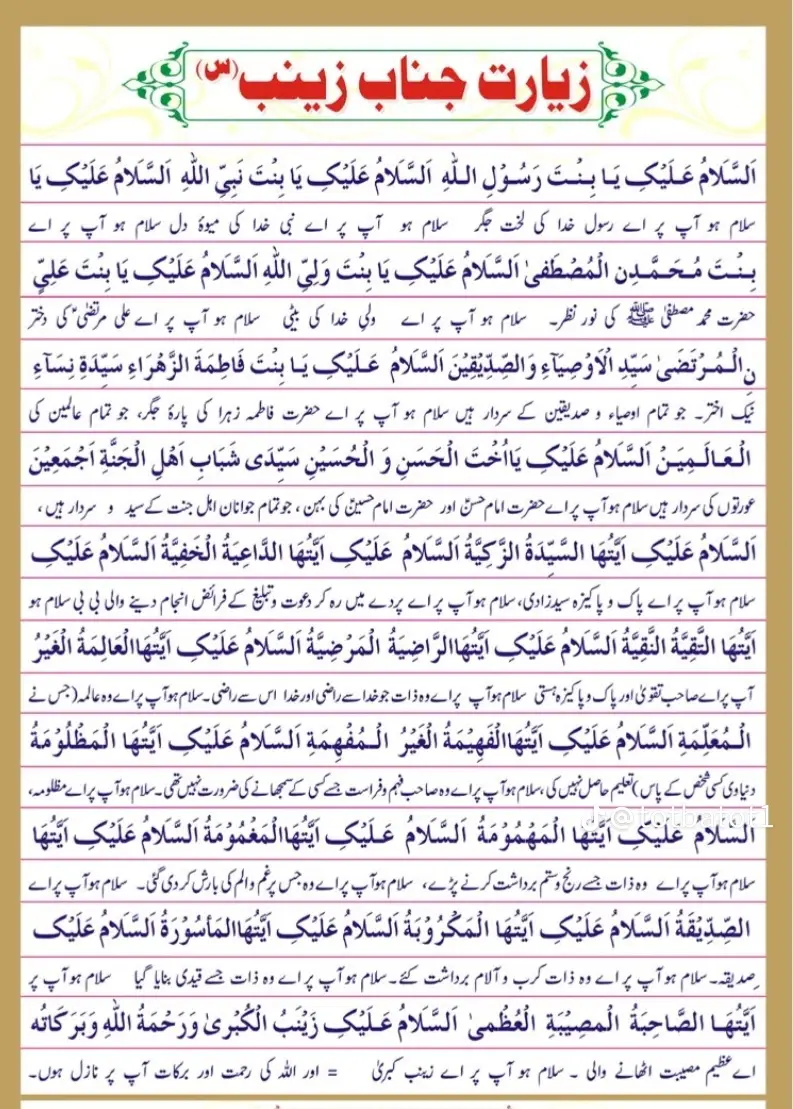 زیارت جناب زینب (س)
اَلسَّلَامُ عَلَیْکِ یَا بِنْتَ رَسُوْلِ اللهِ اَلسَّلَامُ عَلَیْکِ یَا بِنْتَ نَبِیِّ اللهِ اَلسَّلَامُ عَلَیْکِ یَا
سلام ہو آپ پر اے رسول خدا کی لخت جگر سلام ہو آپ پر اے نبی خدا کی میوۂ دل سلام ہو آپ پر اے
بِنْتَ مُحَمَّدِنِ الْمُصْطَفیٰ اَلسَّلَامُ عَلَیْکِ یَا بِنْتَ وَلِیِّ اللهِ اَلسَّلَامُ عَلَیْکِ یَا بِنْتَ عَلِیِّ
حضرت محمد مصطفیٰ ﷺ کی نور نظر۔ سلام ہو آپ پر اے ولی خدا کی بیٹی سلام ہو آپ پر اے علی مرتضیٰؑ کی دختر
نِ الْمُرْتَضیٰ سَیِّدِ الْاَوْصِیَآءِ وَالصِّدِّیْقِیْنَ اَلسَّلَامُ عَلَیْکِ یَا بِنْتَ فَاطِمَةَ الزَّهْرَاءِ سَیِّدَةِ نِسَآءِ
نیک اختر۔ جو تمام اوصیاء و صدیقین کے سردار ہیں سلام ہو آپ پر اے حضرت فاطمہ زہرا کی پارۂ جگر، جو تمام عالمین کی
الْعَالَمِیَنْ اَلسَّلَامُ عَلَیْکِ یَااُخْتَ الْحَسَنِ وَ الْحُسَیْنِ سَیِّدَی شَبَابِ اَهْلِ الْجَنَّةِ اَجْمَعِیْنَ
عورتوں کی سردار ہیں سلام ہو آپ پر اے حضرت امام حسنؑ اور حضرت امام حسینؑ کی بہن ، جو تمام جوانان اہل جنت کے سید و سردار ہیں ،
اَلسَّلَامُ عَلَیْکِ اَیَّتُهَا السَّیِّدَةُ الزَّکِیَّةُ اَلسَّلَامُ عَلَیْکِ اَیَّتُهَا الدَّاعِیَةُ الْخَفِیَّةُ اَلسَّلَامُ عَلَیْکِ
سلام ہو آپ پر اے پاک و پاکیزہ سیدزادی، سلام ہو آپ پر اے پردے میں رہ کر دعوت و تبلیغ کے فرائض انجام دینے والی بی بی سلام ہو
اَیَّتُهَا التَّقِیَّةُ النَّقِیَّةُ اَلسَّلَامُ عَلَیْکِ اَیَّتُهَاالرَّاضِیَةُ الْمَرْضِیَّةُ اَلسَّلَامُ عَلَیْکِ اَیَّتُهَاالْعَالِمَةُ الْغَیْرُ
آپ پر اے صاحب تقویٰ اور پاک و پاکیزہ ہستی سلام ہو آپ پر اے وہ ذات جو خدا سے راضی اور خدا اس سے راضی۔ سلام ہو آپ پر اے وہ عالمہ (جس نے
الْمُعَلِّمَةِ اَلسَّلَامُ عَلَیْکِ اَیَّتُهَاالْفَهِیْمَةُ الْغَیْرُ الْمُفْهِمَةِ اَلسَّلَامُ عَلَیْکِ اَیَّتُهَا الْمَظْلُوْمَةُ
دنیاوی کسی شخص کے پاس) تعلیم حاصل نہیں کی ، سلام ہو آپ پر اے وہ صاحب فہم و فراست جسے کسی کے سمجھانے کی ضرورت نہیں تھی۔ سلام ہو آپ پر اے مظلومہ ،
اَلسَّلَامُ عَلَیْکِ اَیَّتُهَا الْمَهْمُوْمَةُ اَلسَّلَامُ عَلَیْکِ اَیَّتُهَاالْمَغْمُوْمَةُ اَلسَّلَامُ عَلَیْکِ اَیَّتُهَا
سلام ہو آپ پر اے وہ ذات جسے رنج و ستم برداشت کرنے پڑے، سلام ہو آپ پر اے وہ جس پر غم و الم کی بارش کر دی گئی۔ سلام ہو آپ پر اے
الصِّدِّیْقَةُ اَلسَّلَامُ عَلَیْکِ اَیَّتُهَا الْمَکْرُوْبَةُ اَلسَّلَامُ عَلَیْکِ اَیَّتُهَاالمَأسُوْرَةُ اَلسَّلَامُ عَلَیْکِ
صدیقہ۔ سلام ہو آپ پر اے وہ ذات کرب و آلام برداشت کئے۔ سلام ہو آپ پر اے وہ ذات جسے قیدی بنایا گیا سلام ہو آپ پر
اَیَّتُهَا الصَّاحِبَةُ الْمصِیْبَةِ الْعُظْمیٰ اَلسَّلَامُ عَلَیْکِ زَیْنَبُ الْکُبْریٰ وَرَحْمَةُ اللهِ وَبَرَکَاتُه
اے عظیم مصیبت اٹھانے والی ۔ سلام ہو آپ پر اے زینب کبریٰ = اور اللہ کی رحمت اور برکات آپ پر نازل ہوں۔